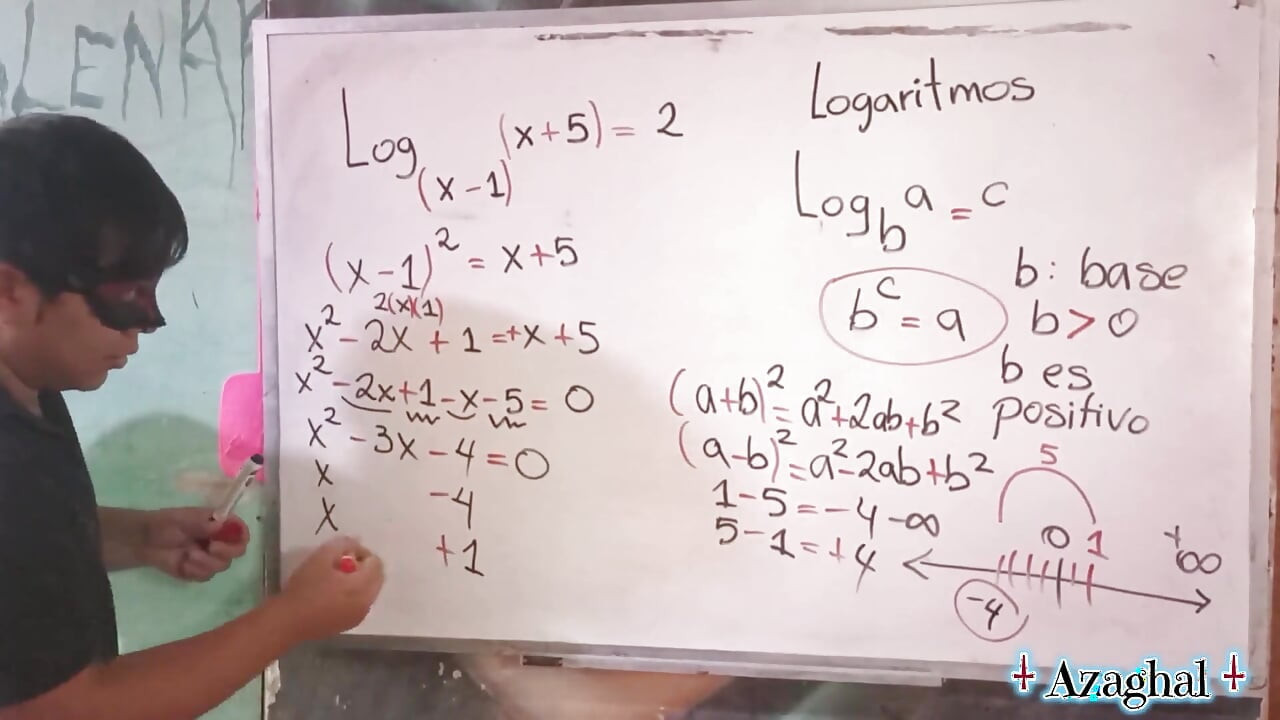 LENK
Log(x-1) (x+5) = 2
(x-1)² = x+5
2(x)(1)
x² - 2x + 1 = +x + 5
x² - 2x + 1 - x - 5 = 0
x² - 3x - 4 = 0
x -4
x +1
Logaritmos
Log_b a = c
b^c = a
b: base
b > 0
b es
positivo
(a+b)² = a² + 2ab + b²
(a-b)² = a² - 2ab + b²
1 - 5 = -4
5 - 1 = +4
5
-∞ 0 1 +∞
-4
Azaghal